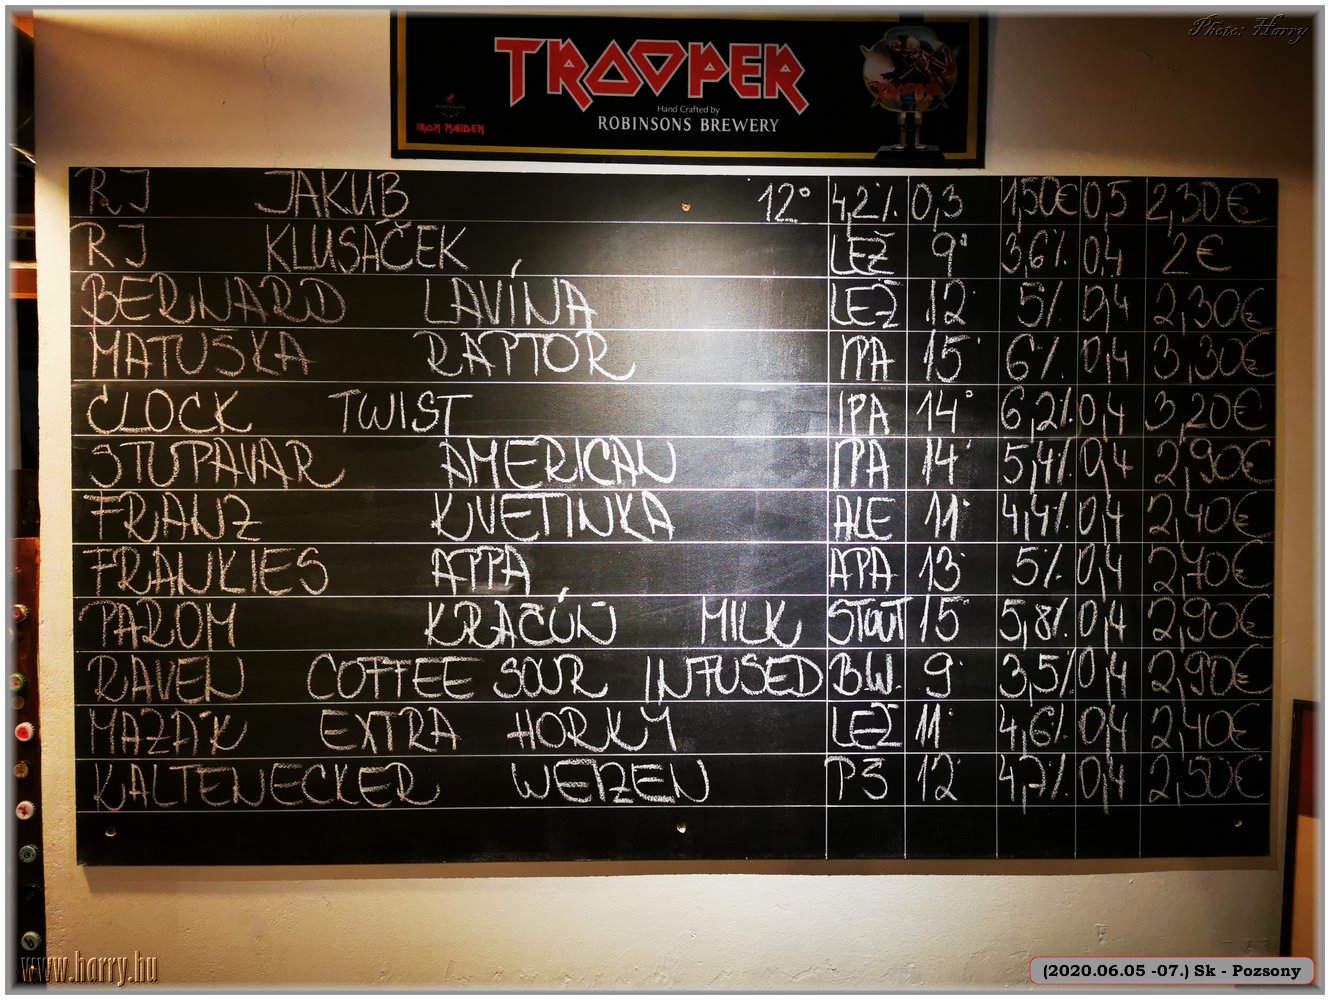 Photo: Harry
TROOPER
Hand Crafted by
ROBINSONS BREWERY
ROBINSONS
IRON MAIDEN
RJ JAKUB 12° 4,2% 0,3 1,50€ 0,5 2,30€
RJ KLUSÁČEK LEŽ 9° 3,6% 0,4 2€
BERNARD LAVÍNA LEŽ 12° 5% 0,4 2,30€
MATUŠKA RAPTOR IPA 15° 6% 0,4 3,30€
CLOCK TWIST IPA 14° 6,2% 0,4 3,20€
STUPAVAR AMERICAN IPA 14° 5,4% 0,4 2,90€
FRANZ KVETINKA ALE 11° 4,4% 0,4 2,40€
FRANKIES APPA APA 13° 5% 0,4 2,70€
PAROM KRAČÚŇ MILK STOUT 15° 5,8% 0,4 2,90€
RAVEN COFFEE SOUR INFUSED B.W. 9° 3,5% 0,4 2,90€
MAZÁK EXTRA HORKÝ LEŽ 11° 4,6% 0,4 2,40€
KALTENECKER WEIZEN PŠ 12° 4,7% 0,4 2,50€
www.harry.hu
(2020.06.05 -07.) Sk - Pozsony